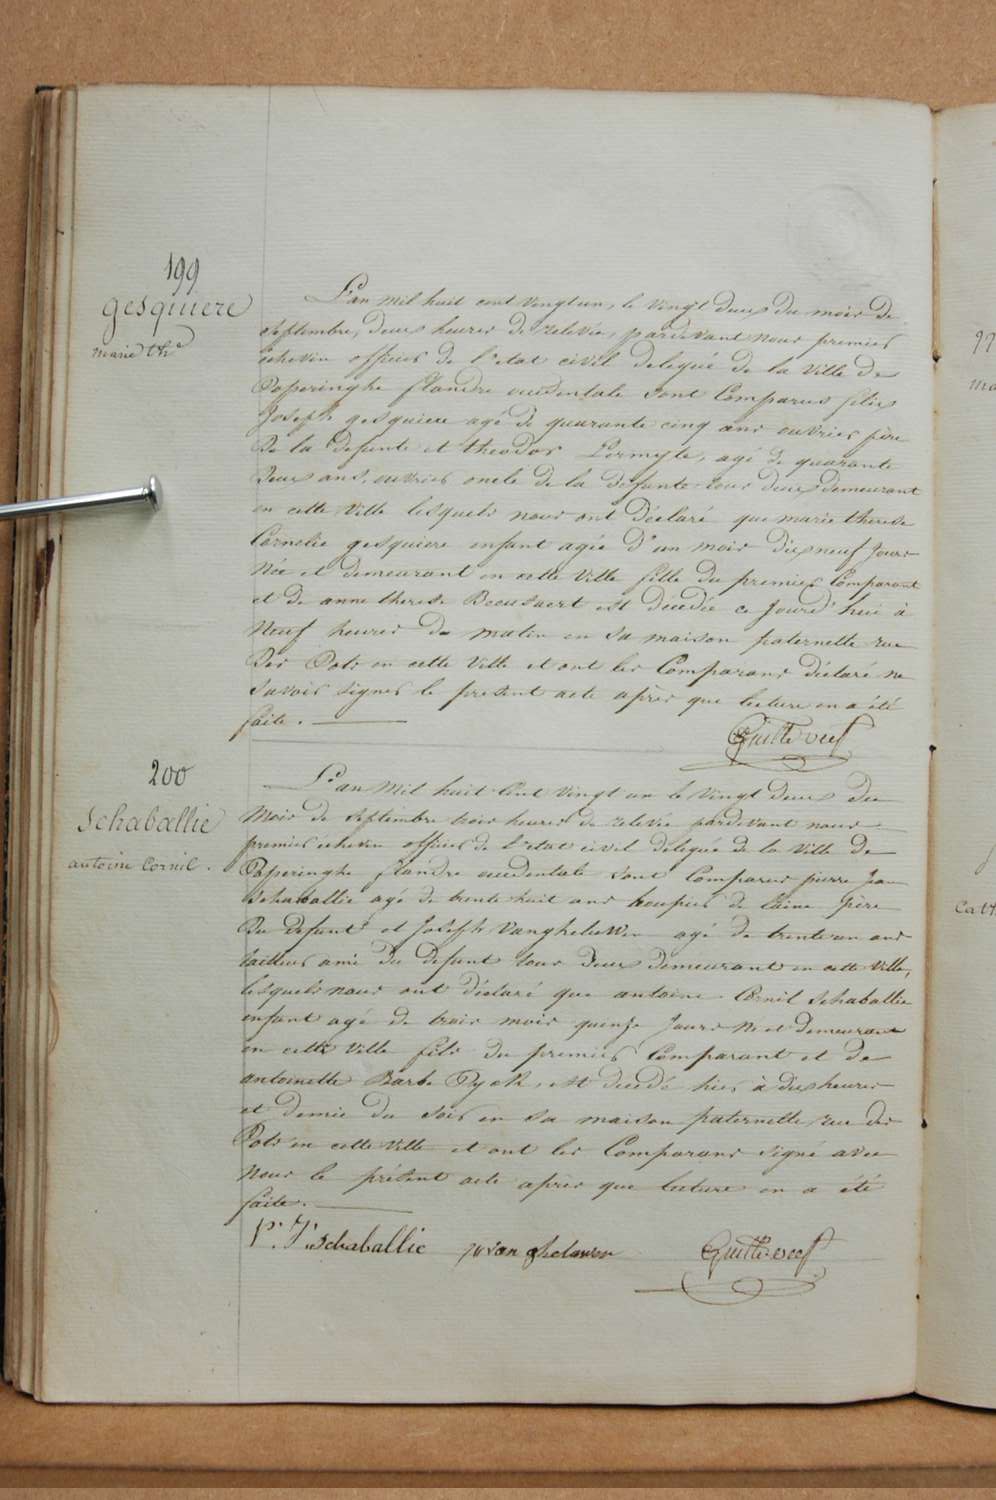 199
gesquiere
marie th.e
L'an mil huit cent vingt un, le vingt deux du mois de
septembre, deux heures de relevée, pardevant nous premier
échevin officier de l'etat civil delegué de la ville de
Poperinghe flandre occidentale sont comparus
Joseph gesquiere agé de quarante cinq ans ouvrier père
de la defunte et theodor Lermyte, agé de quarante
deux ans, ouvrier oncle de la defunte tous deux demeurant
en cette ville lesquels nous ont déclaré que marie therese
Cornelie gesquiere enfant agée d'un mois dix neuf jours
née et demeurant en cette ville fille du premier comparant
et de anne therese Beeusaert est décédée ce jourd'hui à
neuf heures du matin en sa maison paternelle rue
des Pots en cette ville et ont les comparans déclaré ne
savoir signer le present acte après que lecture en a été
faite.
200
Schaballie
antoine Cornil.
L'an mil huit cent vingt un le vingt deux du
mois de septembre trois heures de relevée pardevant nous
premier échevin officier de l'etat civil delegué de la ville de
Poperinghe flandre occidentale sont comparus pierre Jean
schaballie agé de trente huit ans houpier de laine père
du defunt et Joseph Vanghelüwen agé de trente un ans
tailleur ami du defunt tous deux demeurant en cette ville,
lesquels nous ont déclaré que antoine Cornil schaballie
enfant agé de trois mois quinze jours né et demeurant
en cette ville fils du premier comparant et de
antoinette Barbe Tyck, est decedé hier à dix heures
et demie du soir en sa maison paternelle rue des
Pots en cette ville et ont les comparans signé avec
nous le présent acte après que lecture en a été
faite.
P. J. schaballie van ghelawen